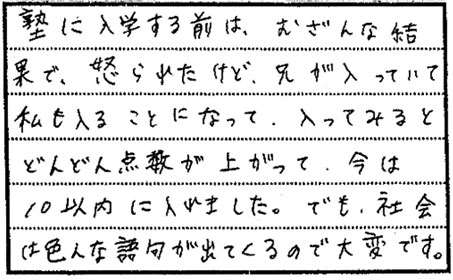 塾に入学する前は、むざんな結
果で、怒られたけど、兄が入っていて
私も入ることになって、入ってみると
どんどん点数が上がって、今は
10以内に入れました。でも、社会
は色んな語句が出てくるので大変です。